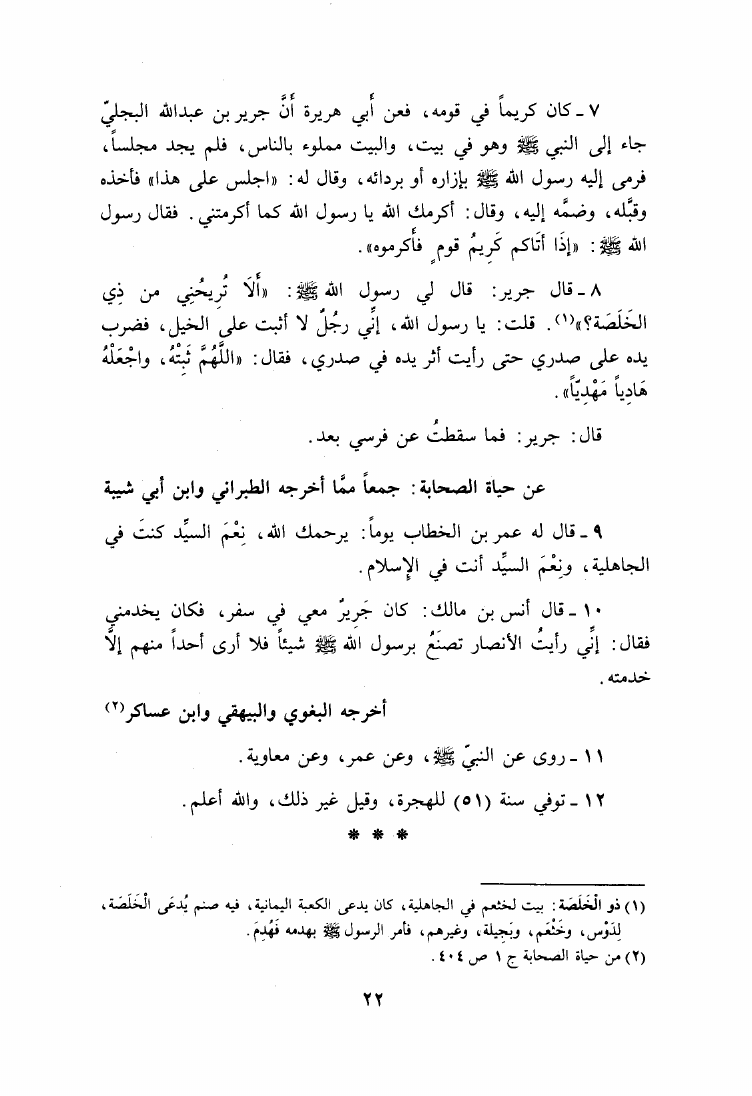 ٧ ـ كان كريماً في قومه، فعن أَبي هريرة أَنَّ جرير بن عبدالله البجليّ
جاء إلى النبي ﷺ وهو في بيت، والبيت مملوء بالناس، فلم يجد مجلساً،
فرمى إليه رسول الله ﷺ بإزاره أو بردائه، وقال له: «اجلس على هذا» فأخذه
وقبَّله، وضمَّه إليه، وقال: أكرمك الله يا رسول الله كما أكرمتني. فقال رسول
الله ﷺ: «إِذَا أَتَاكم كَرِيمُ قومٍ فأكرموه».
٨ ـ قال جرير: قال لي رسول الله ﷺ: «أَلَا تُرِيحُنِي من ذِي
الخَلَصَة؟»(١). قلت: يا رسول الله، إنِّي رجُلٌ لا أثبت على الخيل، فضرب
يده على صدري حتى رأيت أثر يده في صدري، فقال: «اللَّهُمَّ ثَبِّتْهُ، واجْعَلْهُ
هَادِياً مَهْدِيّاً».
قال: جرير: فما سقطتُ عن فرسي بعد.
عن حياة الصحابة: جمعاً ممَّا أخرجه الطبراني وابن أبي شيبة
٩ ـ قال له عمر بن الخطاب يوماً: يرحمك الله، نِعْمَ السيِّد كنتَ في
الجاهلية، ونِعْمَ السيِّد أنت في الإسلام.
١٠ ـ قال أنس بن مالك: كان جَرِيرٌ معي في سفر، فكان يخدمني
فقال: إنِّي رأيتُ الأنصار تصنَعُ برسول الله ﷺ شيئاً فلا أرى أحداً منهم إلَّا
خدمته.
أخرجه البغوي والبيهقي وابن عساكر(٢)
١١ ـ روى عن النبيّ ﷺ، وعن عمر، وعن معاوية.
١٢ ـ توفي سنة (٥١) للهجرة، وقيل غير ذلك، والله أعلم.
* * *
(١) ذو الْخَلَصَة: بيت لخثعم في الجاهلية، كان يدعى الكعبة اليمانية، فيه صنم يُدعَى الْخَلَصَة،
لِدَوْس، وخَثْعَم، وبَجيلة، وغيرهم، فأمر الرسول ﷺ بهدمه فَهُدِمَ.
(٢) من حياة الصحابة ج ١ ص ٤٠٤.
٢٢